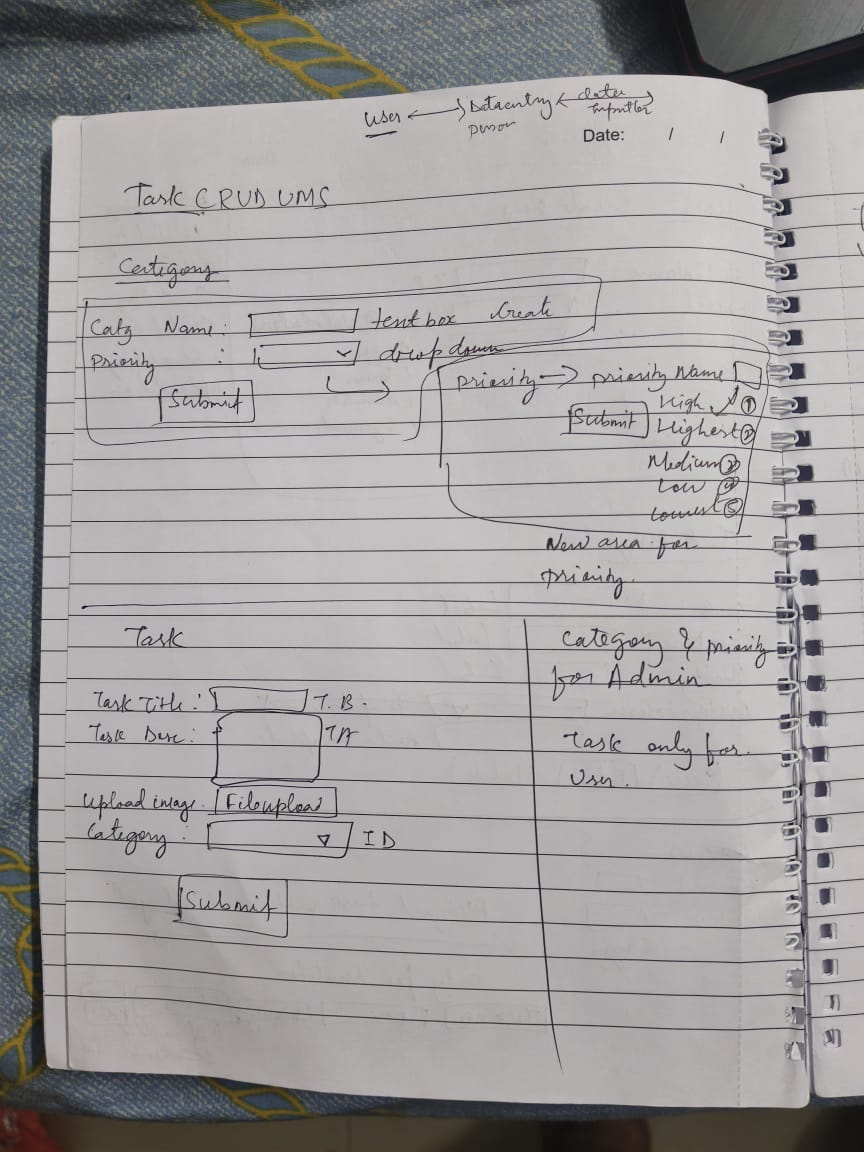 User ↔ Dataentry person ↔ data
Date: / /
Task CRUD UMS
Category
Catg Name: text box Create
Priority : drop down
Submit
Priority → priority Name
High ①
Submit Highest ②
Medium ③
Low ④
Lowest ⑤
New area for
priority.
Task
Task Title: T.B.
Task Desc: TA
Upload image. File upload
Category: ID
Submit
Category & priority
for Admin
Task only for
User.